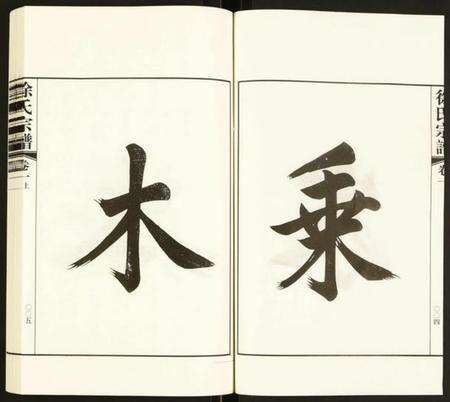 乗
木
徐氏宗譜
卷一
〇〇四
徐氏宗譜
卷一上
〇〇五